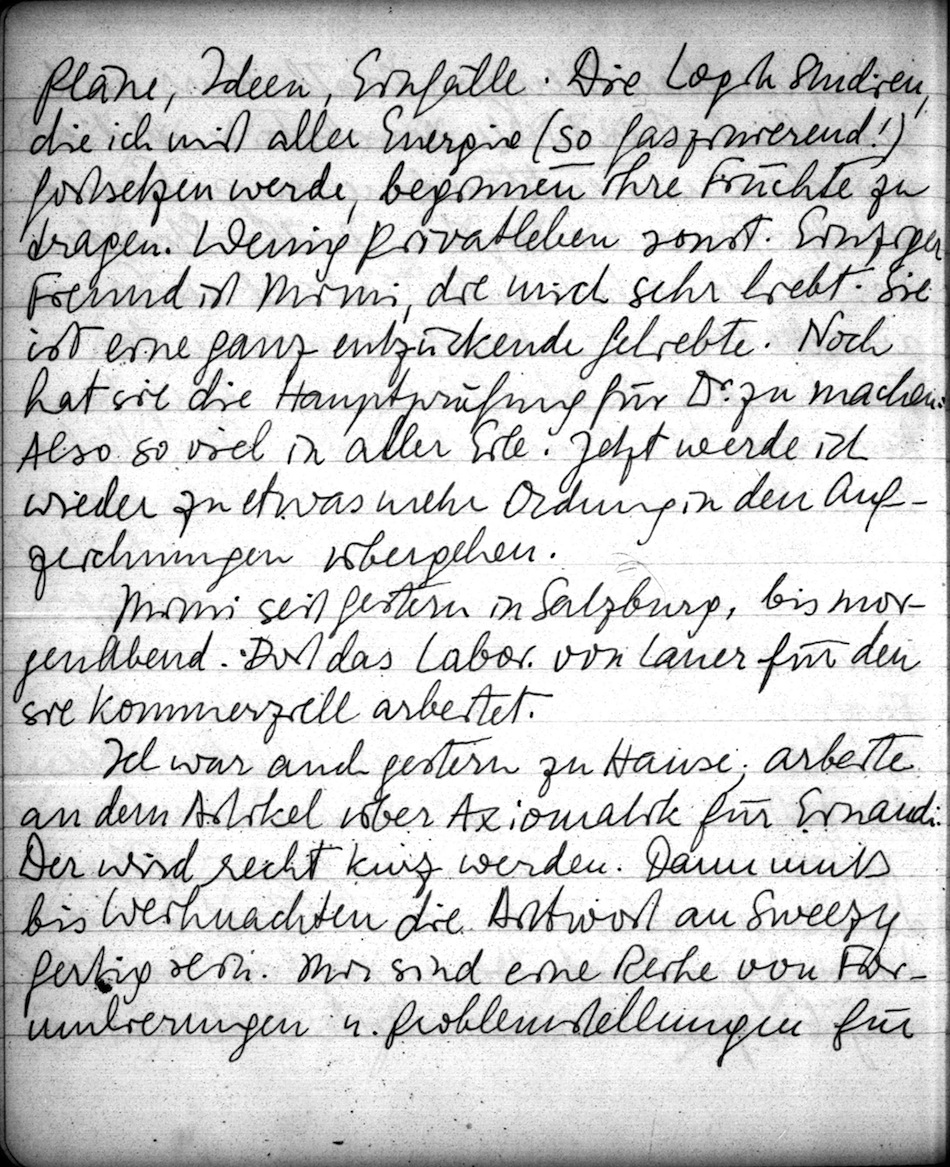 Pläne, Ideen, Einfälle. Die Logik Studien,
die ich mit aller Energie (so faszinierend!)
fortsetzen werde, beginnen ihre Früchte zu
tragen. Wenig Privatleben sonst. Einziger
Freund ist Mimi, die mich sehr liebt. Sie
ist eine ganz entzückende Geliebte. Noch
hat sie die Hauptprüfung für Dr. zu machen.
Also so viel in aller Eile. Jetzt werde ich
wieder zu etwas mehr Ordnung in den Auf-
zeichnungen übergehen.
Mimi seit gestern in Salzburg, bis mor-
gen Abend. Dort das Labor. von Lauer für den
sie kommerziell arbeitet.
Ich war auch gestern zu Hause; arbeite
an dem Artikel über Axiomatik für Einaudi.
Der wird recht kurz werden. Dann muss
bis Weihnachten die Antwort an Sweezy
fertig sein. Mir sind eine Reihe von For-
mulierungen u. Problemstellungen für